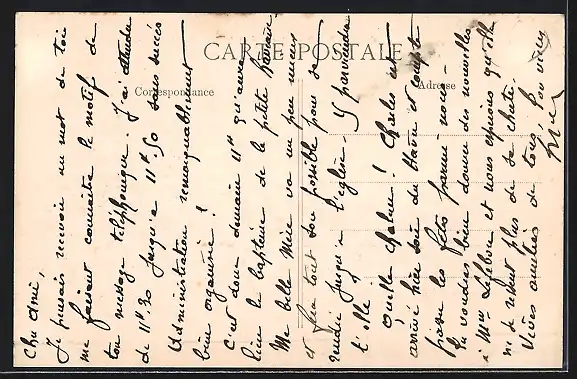 CARTE POSTALE
Correspondance
Adresse
Cher ami,
Je pensais recevoir un mot de toi
me faisant connaître le motif de
ton message téléphonique. J'ai attendu
de 11h.30 jusqu'à 11h.50 sans succès
Administration remarquablement
bien organisée !
C'est donc demain 11h qu'aura
lieu le baptême de la petite
Ma belle Mère va un peu mieux
et fera tout son possible pour se
rendre jusqu'à l'église. Y parviendra
t'elle ?
Quelle chaleur ! Charles est
arrivé hier soir du Havre et compte
passer les fêtes parmi nous.
Tu voudras bien donner des nouvelles
à Mme Lefebvre et nous espérons qu'elle
ne se ressent plus de sa chute.
Vives amitiés de tous. Bons pour vous